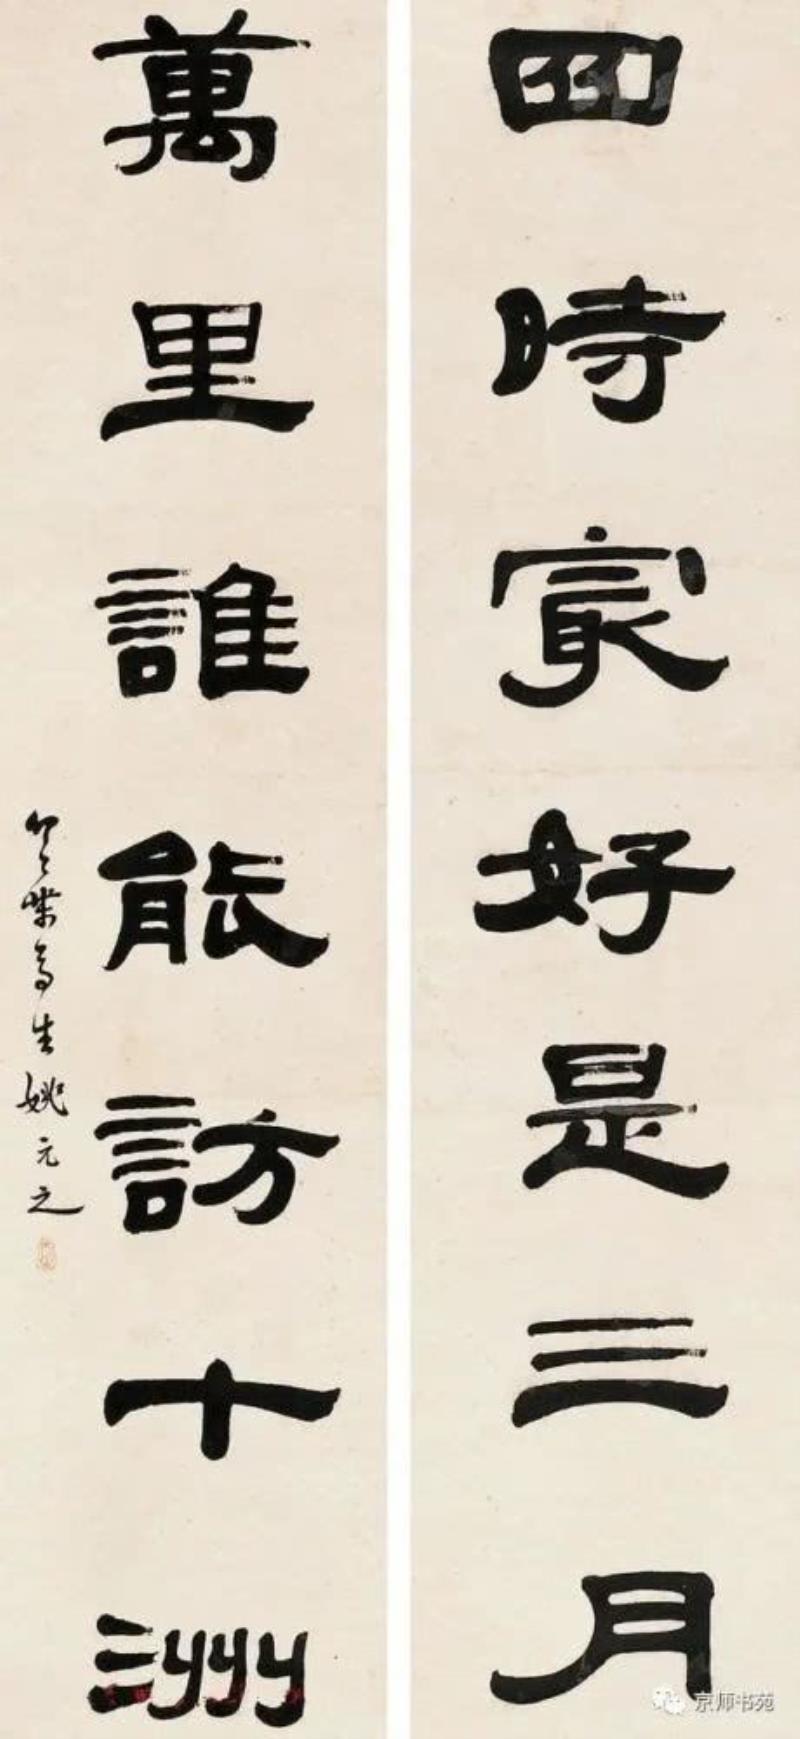 四時㝡好是三月
萬里誰能訪十洲
竹葉亭生姚元之
京师书苑